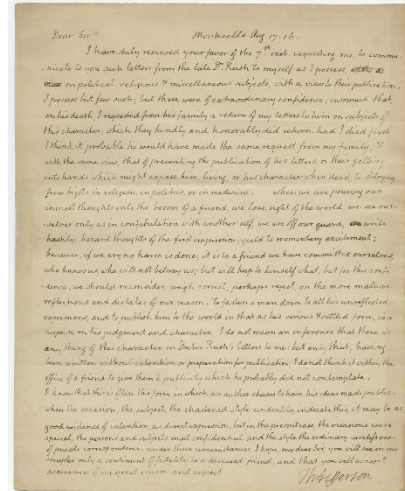 Dear Sir Monticello Aug 17. 16.
I have duly received your favor of the 7th inst. requesting me to commu-
nicate to you such letters from the late Dr Rush to myself as I possess,
on political, religious & miscellaneous subjects, with a view to their publication.
I possess but few such; but these were of extraordinary confidence; insomuch that,
on his death, I requested from his family a return of my letters to him on subjects of
this character, which they kindly and honorably did return. had I died first
I think it probable he would have made the same request from my family, &
with the same view, that of preventing the publication of his letters, or their getting
into hands which might expose him, living, or his character when dead, to obloquy
from bigots in religion, in politics, or in medicine. when we are pouring our
inmost thoughts into the bosom of a friend, we lose sight of the world, we see our-
selves only as in confabulation with another self, we are off our guard, write
hastily; hazard thoughts of the first impression; yield to momentary excitement;
because, if we err, no harm is done; it is to a friend we have committed ourselves,
who knows us, who will not betray us; but will keep to himself what, but for this confi-
dence, we should reconsider, weigh, correct, perhaps reject, on the more mature
reflections and dictates of our reason. to fasten a man down to all his unreflected
expressions, and to publish him to the world in that as his serious & settled form, is a
surprise on his judgment and character. I do not mean an inference that there is
any thing of this character in Doctor Rush's letters to me: but only that, having
been written without intention or preparation for publication, I do not think it within the
office of a friend to give them a publicity which he probably did not contemplate.
I know that this is often the form in which an author chuses to have his ideas made public.
when the occasion, the subject, the chastened style evidently indicate this, it may be as
good evidence of intention, as direct expression. but in the present case the occasions were
special, the persons and subjects most confidential, and the style the ordinary carelessness
of private correspondence. under these circumstances I hope, my dear Sir, you will see in my
scruples only a sentiment of fidelity to a deceased friend, and that you will accept
assurances of my great esteem and respect
Th: Jefferson